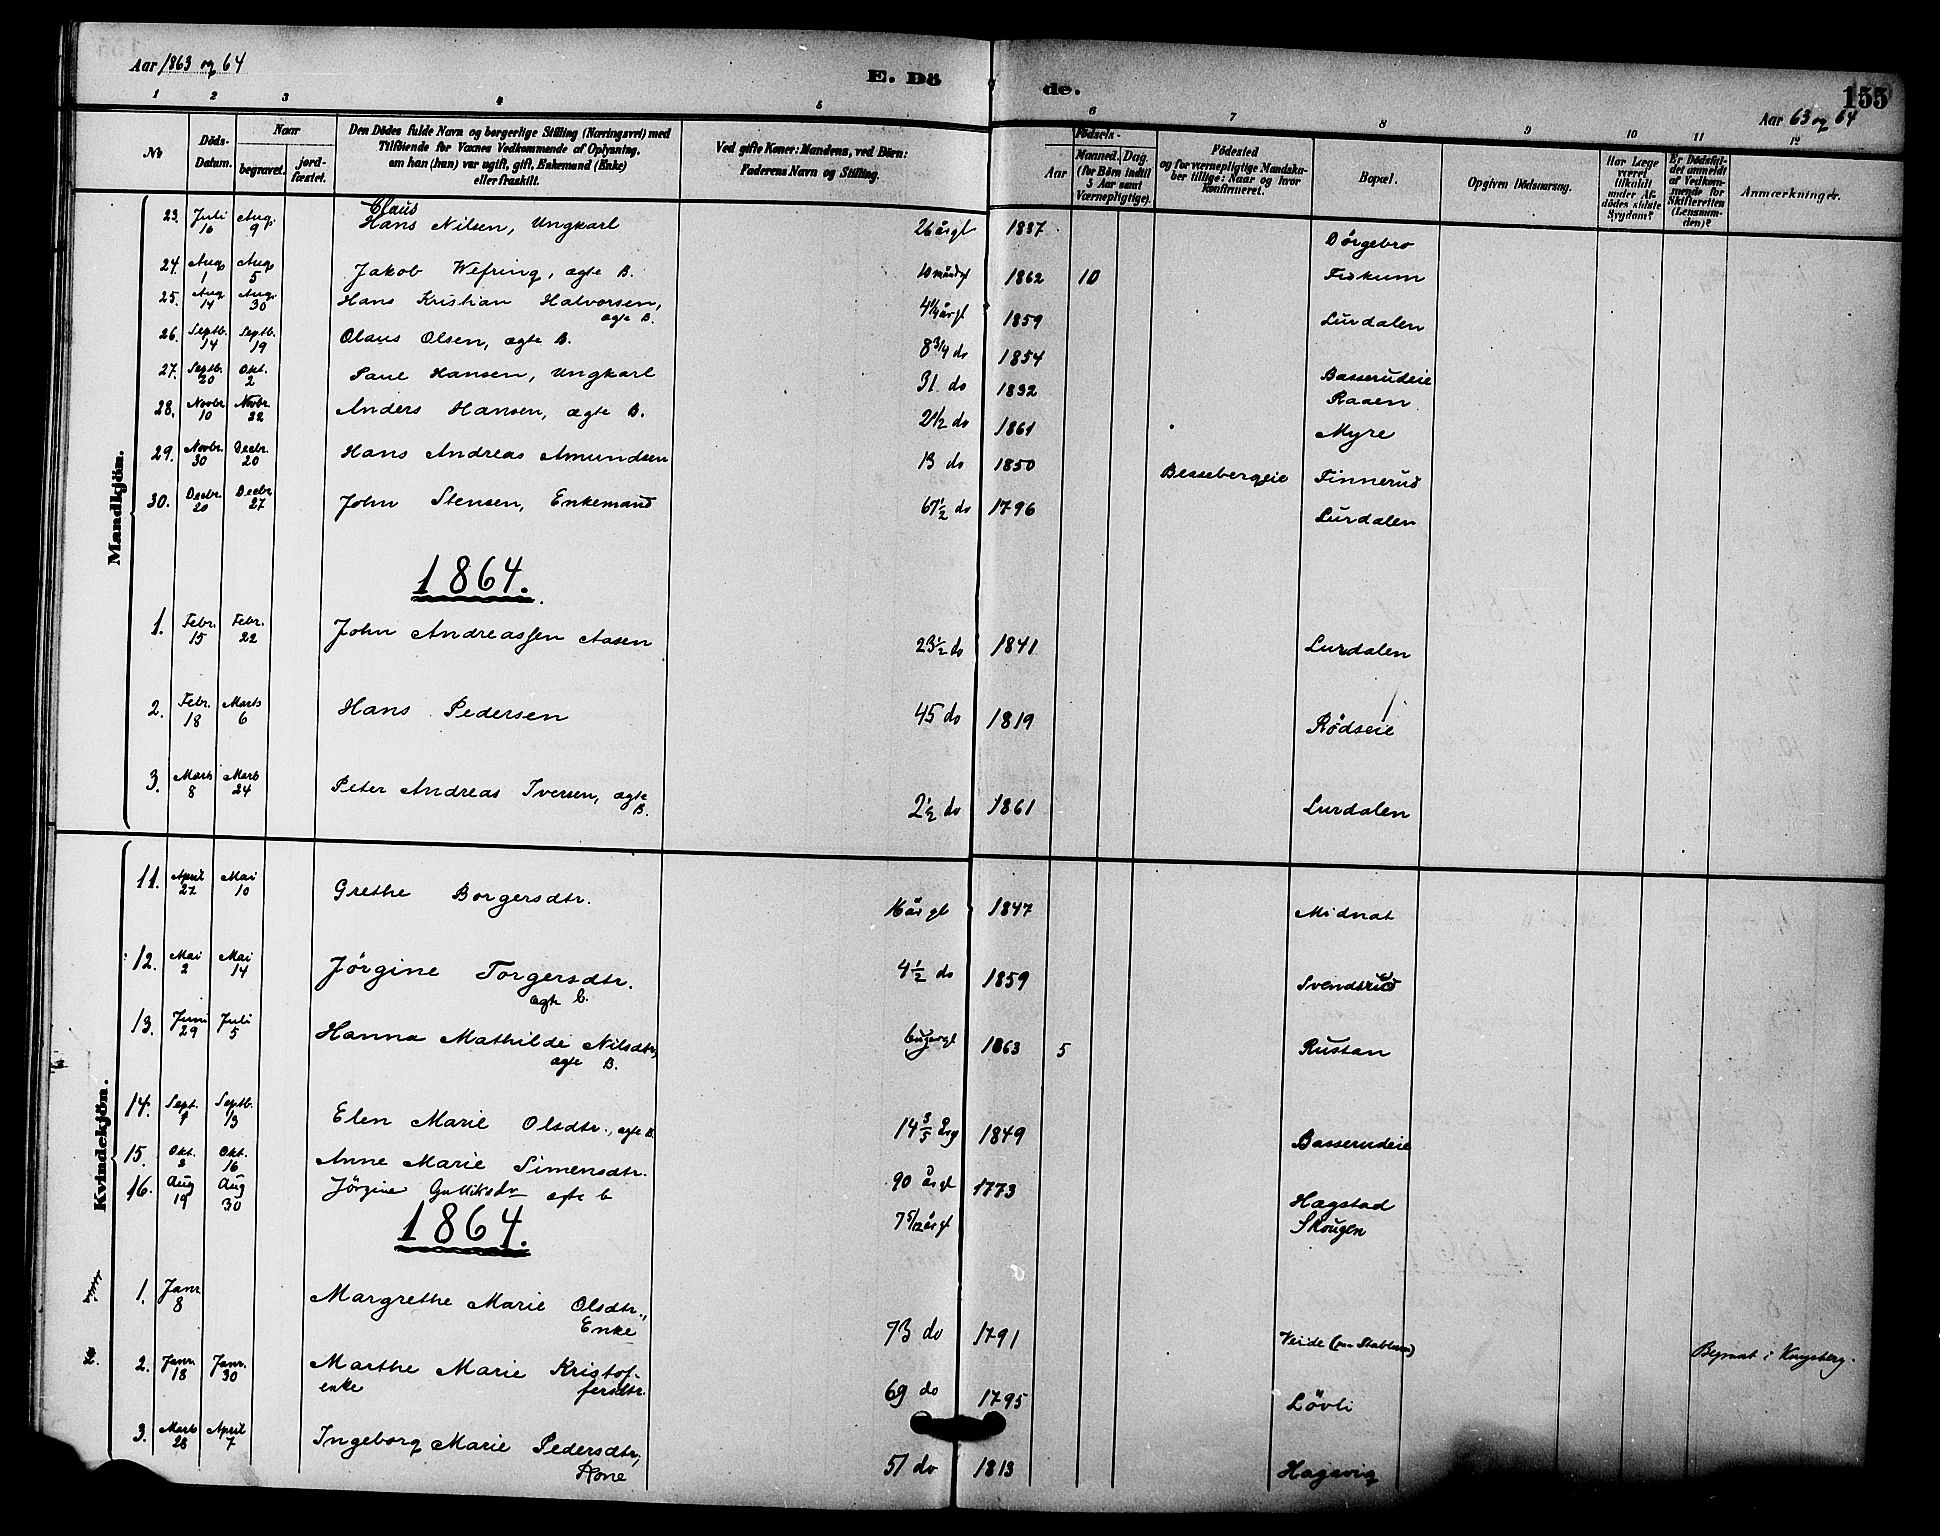 Aar 1863 og 64
E. Dö de.
155
Aar 63 og 64
1 2 3 4 5 6 7 8 9 10 11 12
No
Döds-Datum.
Naar
begravet.
jord-fæstet.
Den Dödes fulde Navn og borgerlige Stilling (Næringsvei) med
Tilföiende for Voxnes Vedkommende af Oplysning,
om han (hun) var ugift, gift, Enkemand (Enke)
eller fraskilt.
Ved gifte Koner: Mandens, ved Börn:
Faderens Navn og Stilling.
Födsels-
Aar
Maaned. Dag.
(for Börn indtil
5 Aar samt
Værnepligtige).
Födested
og for værnepligtige Mandska-
ber tillige: Naar og hvor
konfirmeret.
Bopæl.
Opgiven Dödsaarsag.
Har Læge
været
tilkaldt
under Af-
dödes sidste
Sygdom?
Er Dödsfal-
det anmeldt
af Vedkom-
mende for
Skifteretten
(Lensman-
den)?
Anmærkninger.
Mandkjön.
Claus
23. Juli 16 Aug. 9 Hans Nilsen, Ungkarl 26 årgl 1837 Dørgebro
24. Aug 1 Aug 5 Jakob Wefring, ægte B. 10 måndgl 1862 10 Fiskum
25. Aug 14 Aug. 30 Hans Kristian Halvorsen, 4 1/4 årgl 1859 Lurdalen
ægte B.
26. Septb. 14 Septb. 19 Olaus Olsen, ægte B. 8 3/4 do 1854 Basserudeie
27. Septb. 20 Okt. 2 Paul Hansen, Ungkarl 31 do 1832 Raaen
28. Novbr 10 Novbr. 22 Anders Hansen, ægte B. 2 1/2 do 1861 Myre
29. Novbr. 30 Decbr. 20 Hans Andreas Amundsen 13 do 1850 Bessebergeie Finnerud
30. Decbr. 20 Decbr 27 John Stensen, Enkemand 67 1/2 do 1796 Lurdalen
1864.
1. Febr. 15 Febr. 22 John Andreassen Aasen 23 1/2 do 1841 Lurdalen
2. Febr. 18 Marts 6 Hans Pedersen 45 do 1819 Rødseie
3. Marts 8 Marts 24 Peter Andreas Iversen, ægte 2 1/2 do 1861 Lurdalen
B.
Kvindekjön.
11. April 27 Mai 10 Grethe Borgersdtr. 16 år gl 1847 Midnat
12. Mai 2 Mai 14 Jørgine Torgersdtr. 4 1/2 do 1859 Svendsrud
ægte b.
13. Juni 29 Juli 5 Hanna Mathilde Nilsdtr, 6 uger gl 1863 5 Rustan
ægte B.
14. Sept. 9 Septb. 13 Elen Marie Olsdtr., ægte B. 14 3/5 årg 1849 Basserudeie
15. Okt. 2 Okt. 16 Anne Marie Simensdtr. 90 årgl 1773 Hægstad
16. Aug 19 Aug 30 Jørgine Gulliksdr ægte b 7 5/12 årgl Skougen
1864.
1. Janr 8 Margrethe Marie Olsdtr., 73 do 1791 Veide
Enke
2. Janr. 18 Janr. 30 Marthe Marie Kristof- 69 do 1795 Løvli
enke fersdtr.
Begravet i Kongsberg.
3. Marts 28 April 7 Ingeborg Marie Pedersdtr, 51 do 1813 Hagavig
Kone